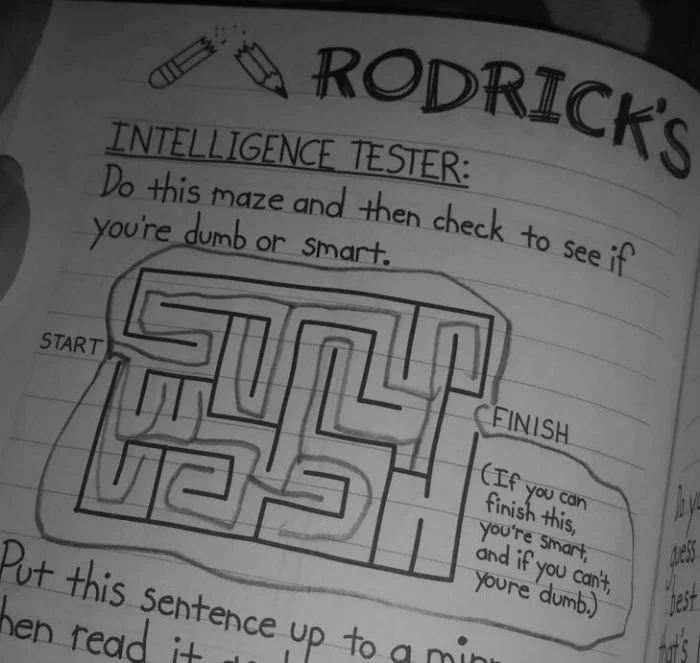 RODRICK'S
INTELLIGENCE TESTER:
Do this maze and then check to see if
you're dumb or smart.
START
FINISH
(If you can
finish this,
you're smart,
and if you can't,
youre dumb.)
Put this sentence up to a
then read it
guess
best
that's